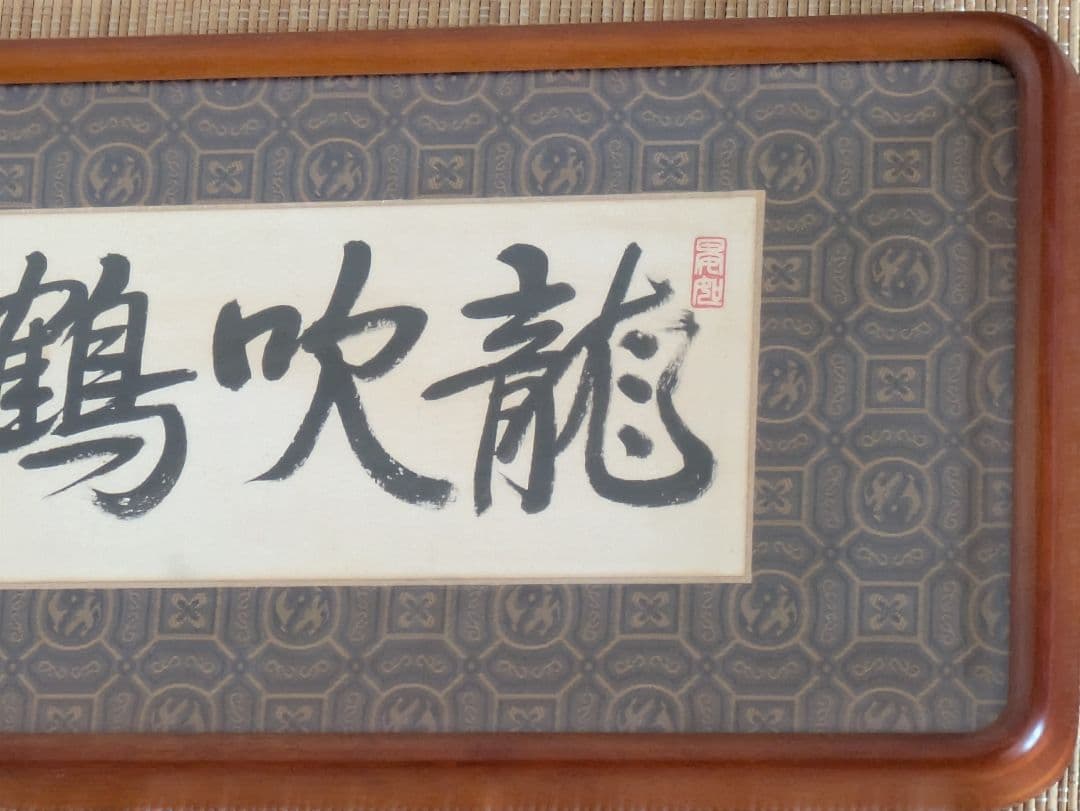 龍吹鶴